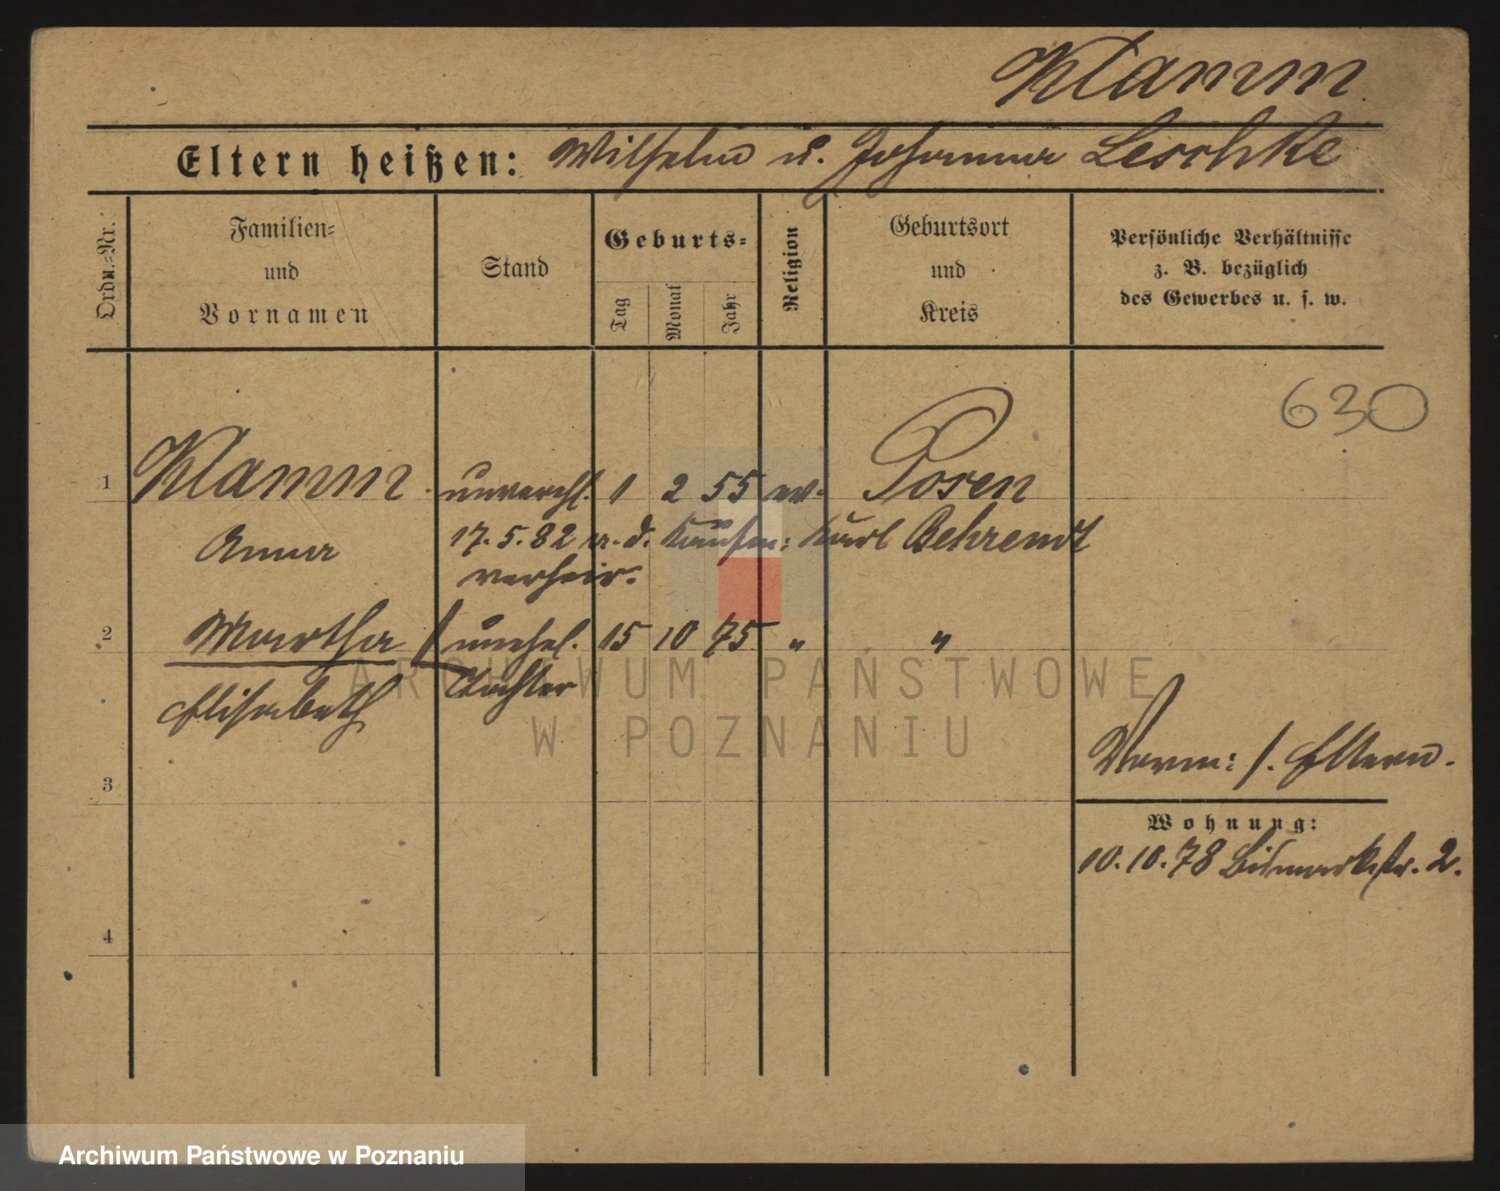 Klamm
Eltern heißen: Wilhelm u. Johanna Leschke
Ordn.=Nr.
Familien=
und
Vornamen
Stand
Geburts=
Tag
Monat
Jahr
Religion
Geburtsort
und
Kreis
Persönliche Verhältnisse
z. B. bezüglich
des Gewerbes u. s. w.
630
1 Klamm unverehl. 1 2 55 ev. Posen
Anna 17.5.82 m. d. Kaufm: Karl Behrendt
verheir.
2 Martha unehel. 15 10 75 " "
Elisabeth Tochter
ARCHIWUM PAŃSTWOWE
W POZNANIU
3
Verm: s. Eltern.
Wohnung:
10.10.78 Bismarkstr. 2.
4
Archiwum Państwowe w Poznaniu